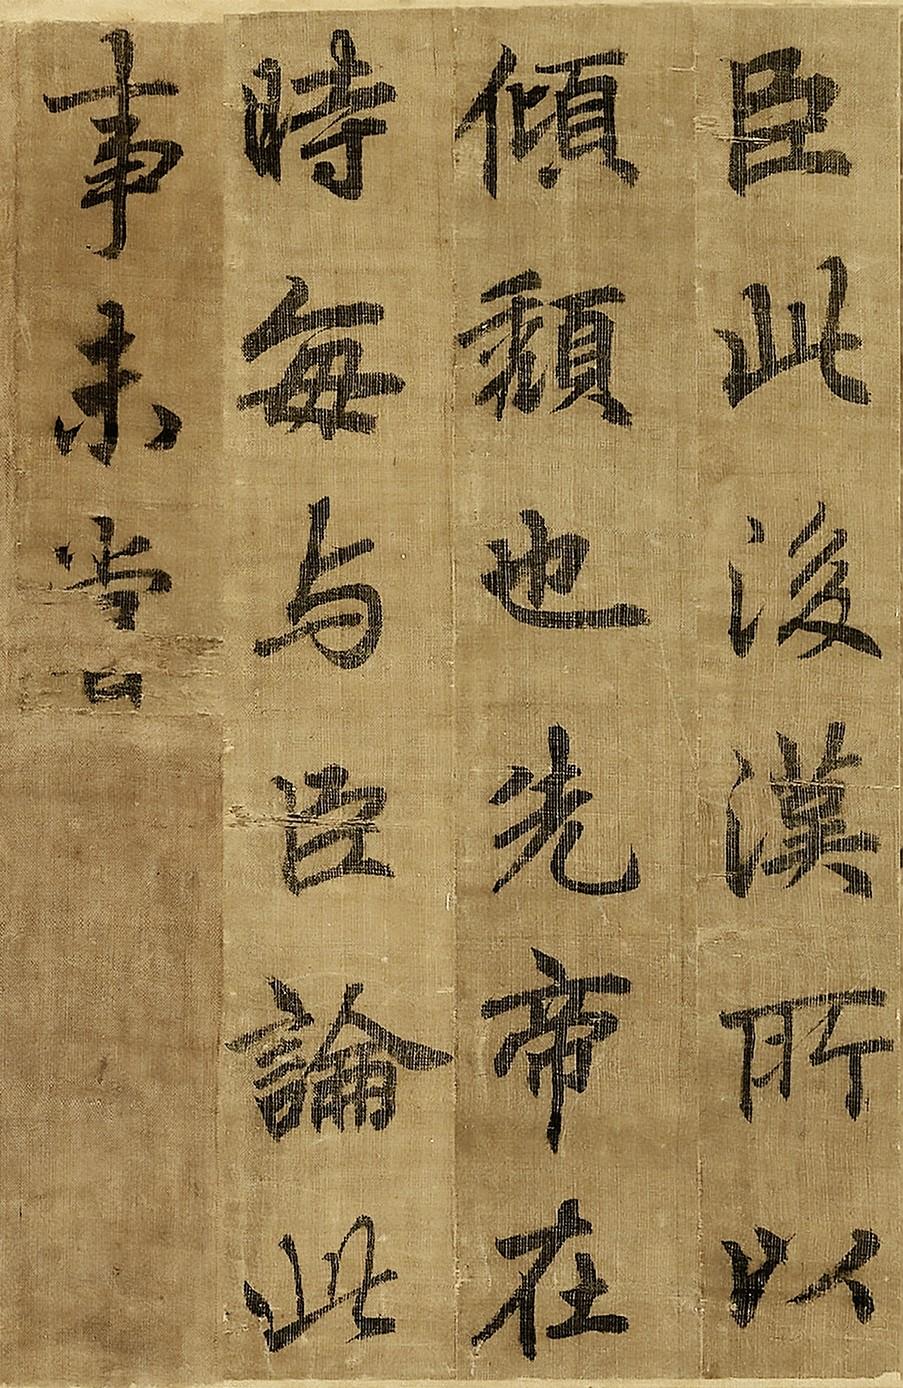 臣此後漢所以
傾頹也先帝在
時每与臣論此
事未甞